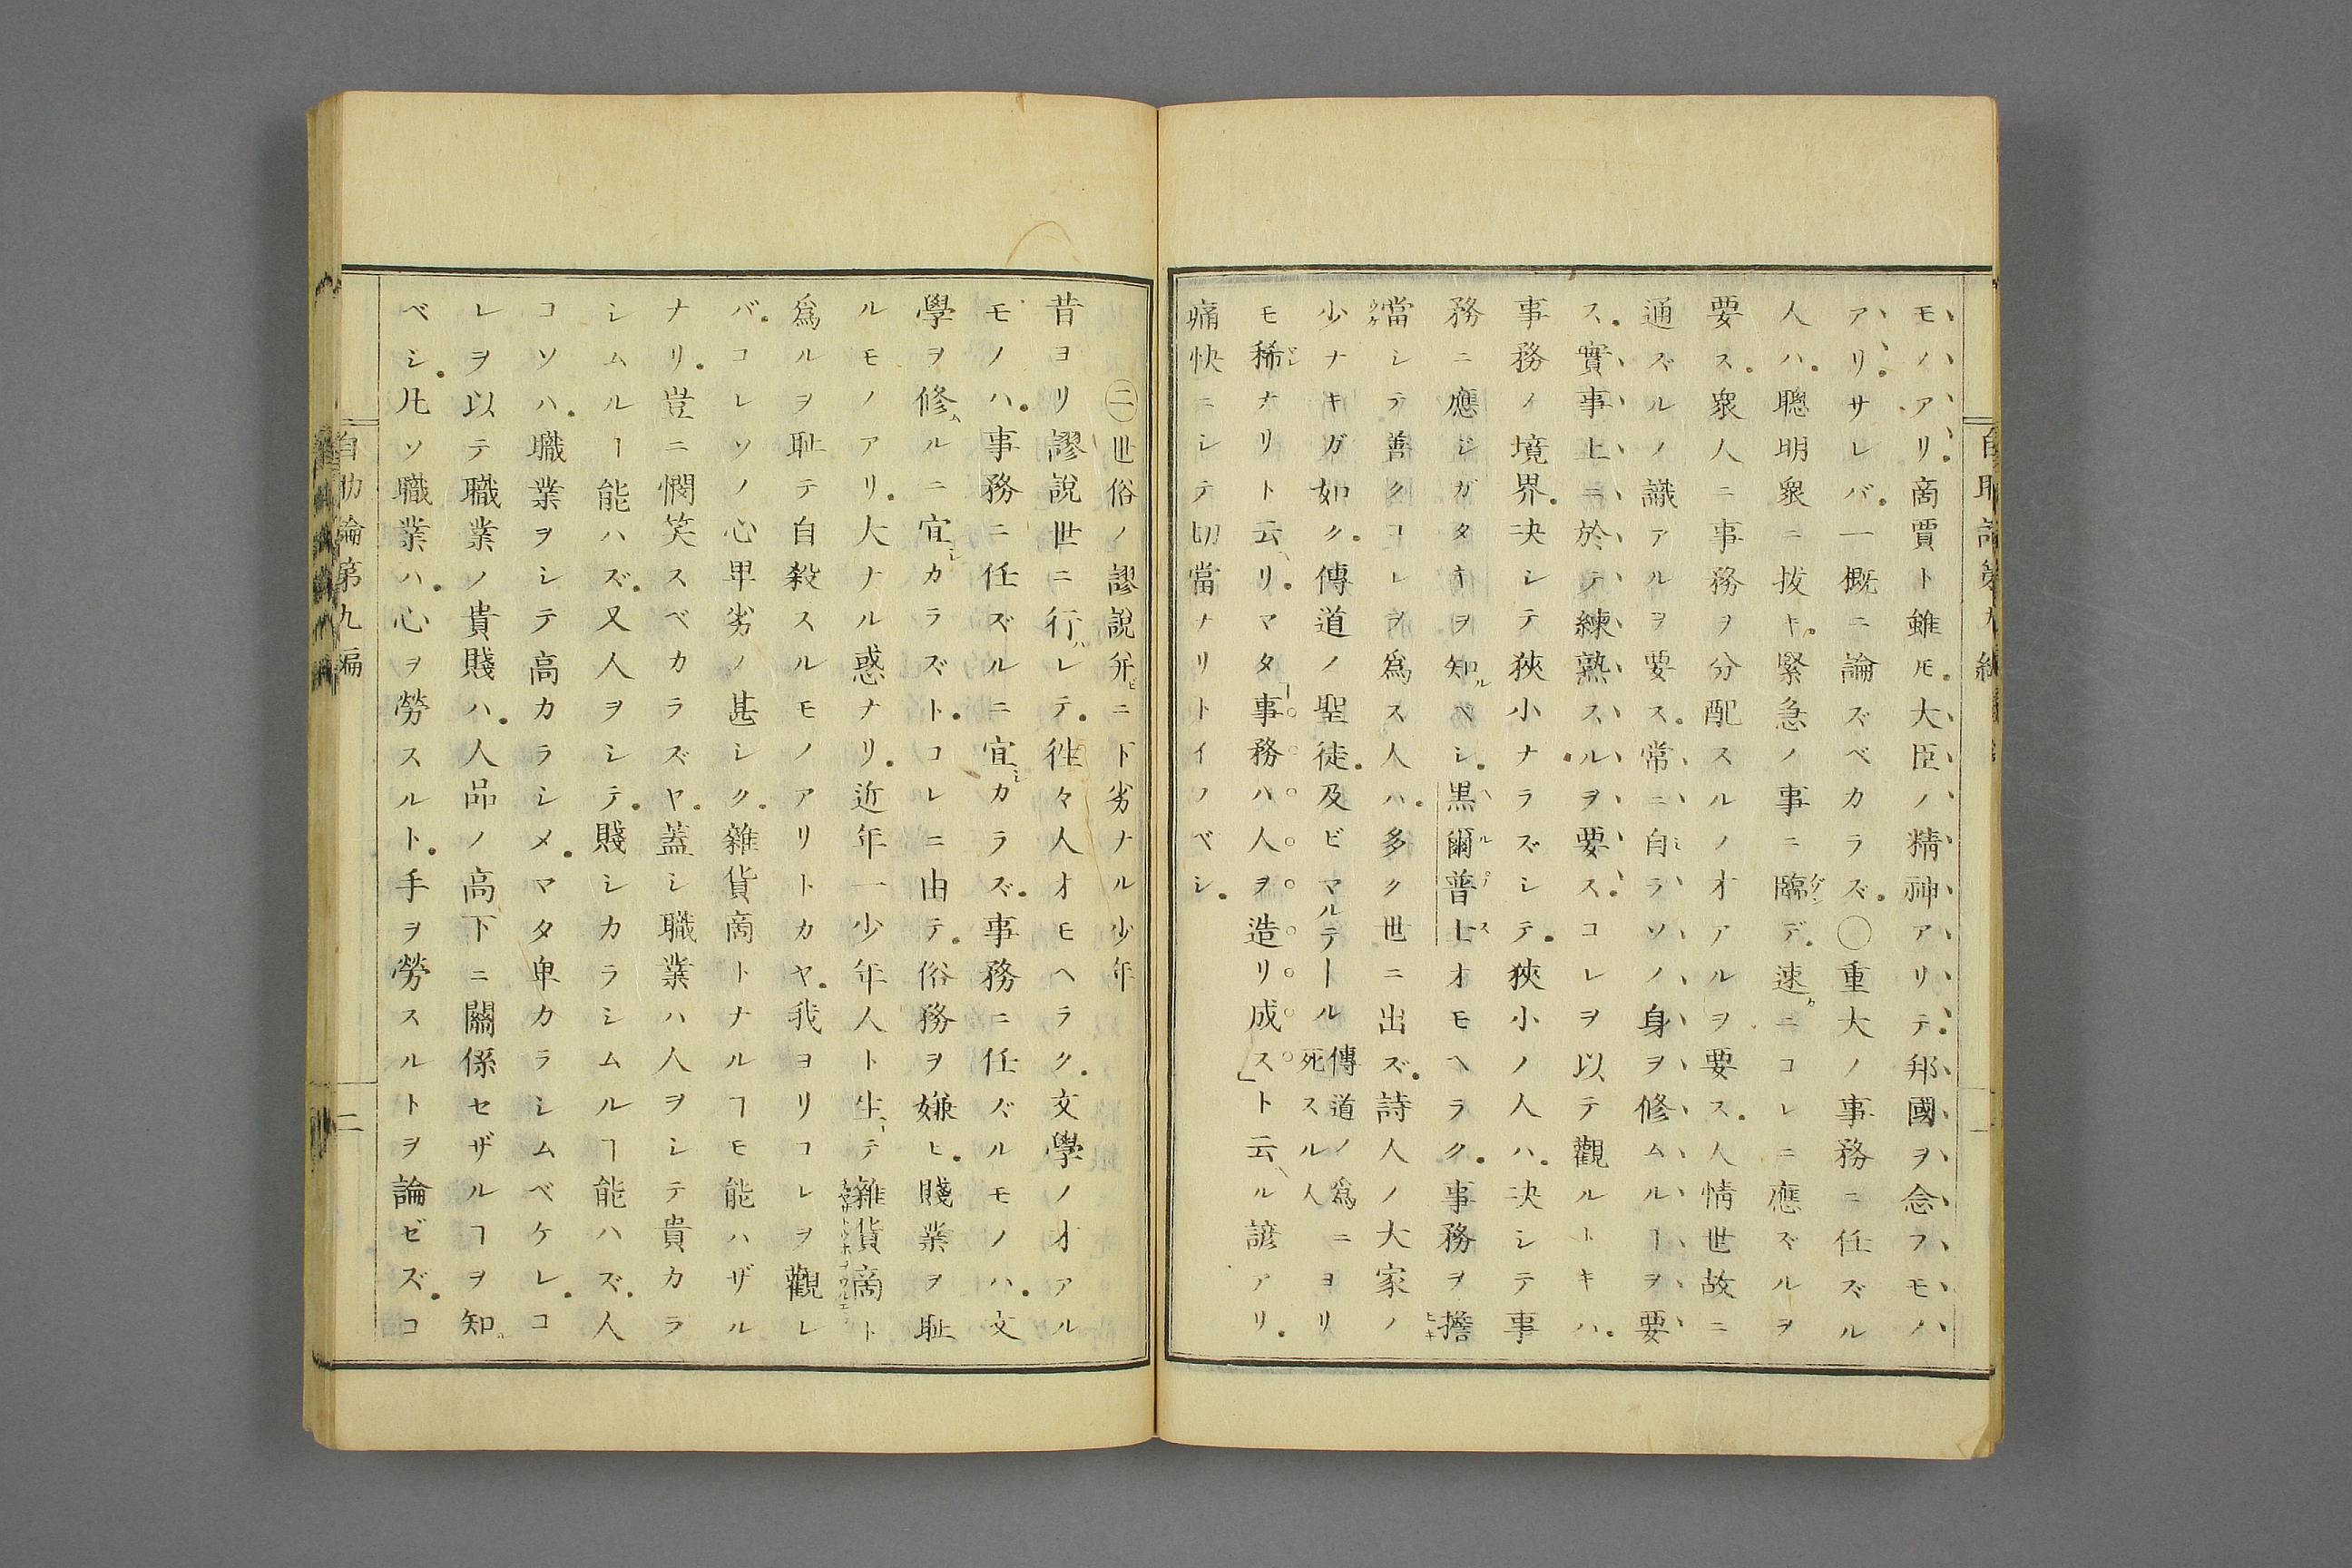 モノアリ。商賈ト雖𪜈。大臣ノ精神アリテ。邦國ヲ念フモノ
アリ。サレバ。一概ニ論ズベカラズ。○重大ノ事務ニ任ズル
人ハ。聰明衆ニ拔キ。緊急ノ事ニ臨デ。速ニコレニ應ズルヲ
要ス。衆人ニ事務ヲ分配スルノ才アルヲ要ス。人情世故ニ
通ズルノ識アルヲ要ス。常ニ自ラソノ身ヲ修ムルヿヲ要
ス。實事上ニ於テ練熟スルヲ要ス。コレヲ以テ觀ルトキハ。
事務ノ境界。决シテ狹小ナラズシテ。狹小ノ人ハ。决シテ事
務ニ應ジガタキヲ知ルベシ。黒爾普士オモヘラク。事務ヲ擔
當シテ善クコレヲ爲ス人ハ。多ク世ニ出ズ。詩人ノ大家ノ
少ナキガ如ク。傳道ノ聖徒。及ビマルテール傳道ノ爲ニヨリ死スル人
モ稀ナリト云リ。マタ「事務ハ人ヲ造リ成ス」ト云ヘル諺アリ。
痛快ニシテ切當ナリトイフベシ。
㊁世俗ノ謬說幷ニ下劣ナル少年
昔ヨリ謬說世ニ行ハレテ。徃々人オモヘラク。文學ノ才アル
モノハ。事務ニ任ズルニ宜シカラズ。事務ニ任ズルモノハ。文
學ヲ修ムルニ宜シカラズト。コレニ由テ。俗務ヲ嫌ヒ。賤業ヲ耻
ルモノアリ。大ナル惑ナリ。近年一少年人ト生レテ雜貨商ト
爲ルヲ耻テ自殺スルモノアリトカヤ。我ヨリコレヲ觀レ
バ。コレソノ心卑劣ノ甚シク。雜貨商トナルヿモ能ハザル
ナリ。豈ニ憫笑スベカラズヤ。蓋シ職業ハ人ヲシテ貴カラ
シムルヿ能ハズ。又人ヲシテ。賤シカラシムルヿ能ハズ。人
コソハ。職業ヲシテ高カラシメ。マタ卑カラシムベケレ。コ
レヲ以テ職業ノ貴賤ハ。人品ノ高下ニ關係セザルヿヲ知ル
ベシ。凡ソ職業ハ。心ヲ勞スルト。手ヲ勞スルトヲ論ゼズ。コ
自助論第九編
二